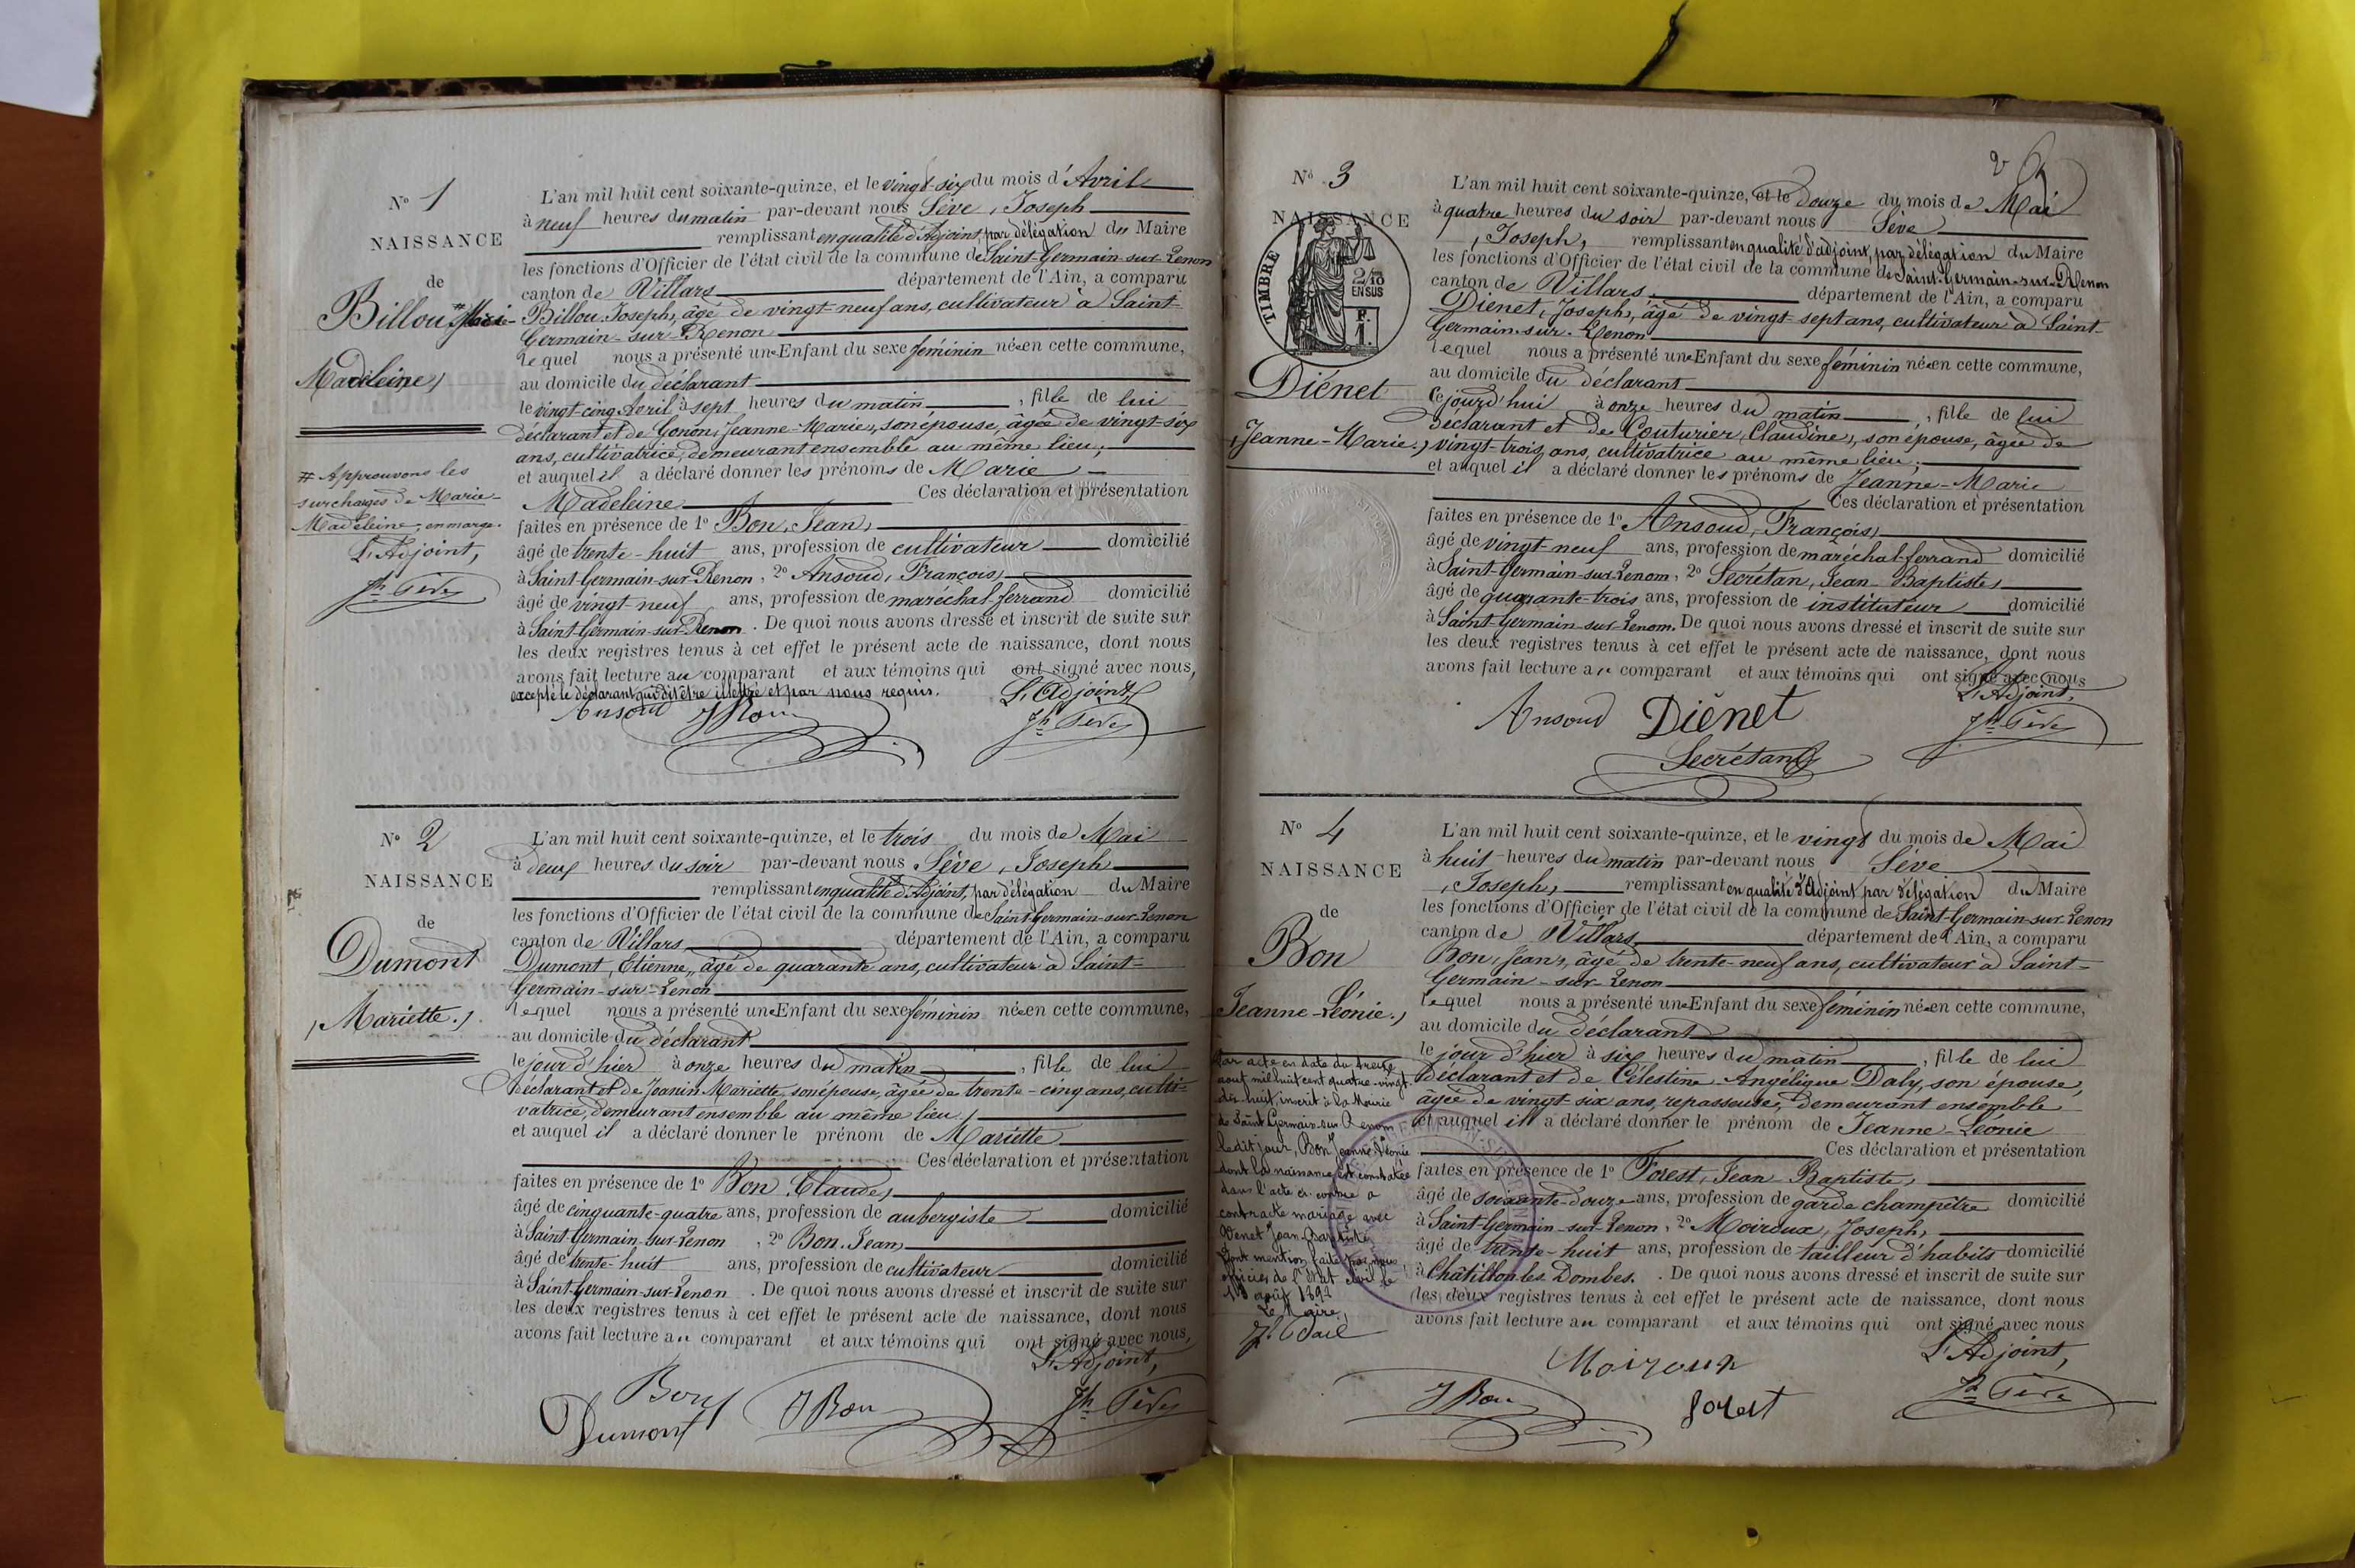 N° 1
NAISSANCE
de
Billoud Marie-
Madeleine,
# Approuvons les
surcharges de Marie-
Madeleine, en marge.
L'Adjoint,
Jh Sève
L'an mil huit cent soixante-quinze, et le vingt-six du mois d'Avril
à neuf heures du matin par-devant nous Sève, Joseph
remplissant en qualité d'Adjoint, par délégation du Maire
les fonctions d'Officier de l'état civil de la commune de Saint-Germain-sur-Renon
canton de Villars département de l'Ain, a comparu
Billou Joseph, âgé de vingt-neuf ans, cultivateur à Saint-
Germain-sur-Renon
lequel nous a présenté une Enfant du sexe féminin née en cette commune,
au domicile du déclarant
le vingt-cinq Avril à sept heures du matin, fille de lui
déclarant et de Gonon, Jeanne-Marie, son épouse, âgée de vingt-six
ans, cultivatrice, demeurant ensemble au même lieu;
et auquel il a déclaré donner les prénoms de Marie-
Madeleine Ces déclaration et présentation
faites en présence de 1° Bon, Jean,
âgé de trente-huit ans, profession de cultivateur domicilié
à Saint-Germain-sur-Renon, 2° Ansoud, François,
âgé de vingt-neuf ans, profession de maréchal-ferrand domicilié
à Saint-Germain-sur-Renon. De quoi nous avons dressé et inscrit de suite sur
les deux registres tenus à cet effet le présent acte de naissance, dont nous
avons fait lecture au comparant et aux témoins qui ont signé avec nous,
excepté le déclarant qui dit être illettré et par nous requis.
L'Adjoint,
Ansoud J Bon Jh Sève
N° 2
NAISSANCE
de
Dumont
, Mariette.,
L'an mil huit cent soixante-quinze, et le trois du mois de Mai
à deux heures du soir par-devant nous Sève, Joseph
remplissant en qualité d'Adjoint, par délégation du Maire
les fonctions d'Officier de l'état civil de la commune de Saint-Germain-sur-Renon
canton de Villars département de l'Ain, a comparu
Dumont, Étienne, âgé de quarante ans, cultivateur à Saint-
Germain-sur-Renon
lequel nous a présenté une Enfant du sexe féminin née en cette commune,
au domicile du déclarant
le jour d'hier à onze heures du matin, fille de lui
déclarant et de Joanin Mariette, son épouse, âgée de trente-cinq ans, culti-
vatrice, demeurant ensemble au même lieu,
et auquel il a déclaré donner le prénom de Mariette
Ces déclaration et présentation
faites en présence de 1° Bon, Claude,
âgé de cinquante-quatre ans, profession de aubergiste domicilié
à Saint-Germain-sur-Renon, 2° Bon, Jean,
âgé de trente-huit ans, profession de cultivateur domicilié
à Saint-Germain-sur-Renon. De quoi nous avons dressé et inscrit de suite sur
les deux registres tenus à cet effet le présent acte de naissance, dont nous
avons fait lecture au comparant et aux témoins qui ont signé avec nous,
L'Adjoint,
Bon J Bon Jh Sève
Dumont
2
N° 3
NAISSANCE
TIMBRE
2/10
EN SUS
F.
1.
Diénet
, Jeanne-Marie.,
L'an mil huit cent soixante-quinze, et le douze du mois de Mai
à quatre heures du soir par-devant nous Sève
, Joseph, remplissant en qualité d'adjoint, par délégation du Maire
les fonctions d'Officier de l'état civil de la commune de Saint-Germain-sur-Renon
canton de Villars département de l'Ain, a comparu
Diénet, Joseph, âgé de vingt-sept ans, cultivateur à Saint-
Germain-sur-Renon
lequel nous a présenté une Enfant du sexe féminin née en cette commune,
au domicile du déclarant
Cejourd'hui à onze heures du matin, fille de lui
déclarant et de Couturier, Claudine, son épouse, âgée de
vingt-trois ans, cultivatrice au même lieu;
et auquel il a déclaré donner les prénoms de Jeanne-Marie
Ces déclaration et présentation
faites en présence de 1° Ansoud, François,
âgé de vingt-neuf ans, profession de maréchal-ferrand domicilié
à Saint-Germain-sur-Renon, 2° Secrétan, Jean-Baptiste,
âgé de quarante-trois ans, profession de instituteur domicilié
à Saint-Germain-sur-Renon. De quoi nous avons dressé et inscrit de suite sur
les deux registres tenus à cet effet le présent acte de naissance, dont nous
avons fait lecture au comparant et aux témoins qui ont signé avec nous
L'Adjoint,
Ansoud Diénet Jh Sève
Secrétan
N° 4
NAISSANCE
de
Bon
Jeanne-Léonie.,
Par acte en date du treize
août mil huit cent quatre-vingt-
dix-huit, inscrit à la Mairie
de Saint Germain-sur-Renon
ledit jour, Bon Jeanne Léonie
dont la naissance est constatée
dans l'acte ci-contre a
contracté mariage avec
Venet Jean-Baptiste
Dont mention faite par nous
officier de l'état civil le
août 189
Le Maire,
L'an mil huit cent soixante-quinze, et le vingt du mois de Mai
à huit heures du matin par-devant nous Sève
, Joseph, remplissant en qualité d'Adjoint par délégation du Maire
les fonctions d'Officier de l'état civil de la commune de Saint-Germain-sur-Renon
canton de Villars département de l'Ain, a comparu
Bon, Jean, âgé de trente-neuf ans, cultivateur à Saint-
Germain-sur-Renon
lequel nous a présenté une Enfant du sexe féminin née en cette commune,
au domicile du déclarant
le jour d'hier à six heures du matin, fille de lui
déclarant et de Célestine Angélique Daly, son épouse,
âgée de vingt-six ans, repasseuse, demeurant ensemble
et auquel il a déclaré donner le prénom de Jeanne-Léonie
Ces déclaration et présentation
faites en présence de 1° Forest, Jean Baptiste,
âgé de soixante-douze ans, profession de garde champêtre domicilié
à Saint-Germain-sur-Renon, 2° Moiroux, Joseph,
âgé de trente-huit ans, profession de tailleur d'habits domicilié
à Châtillon-les-Dombes. De quoi nous avons dressé et inscrit de suite sur
les deux registres tenus à cet effet le présent acte de naissance, dont nous
avons fait lecture au comparant et aux témoins qui ont signé avec nous
L'Adjoint,
Moiroux
J Bon forest Jh Sève